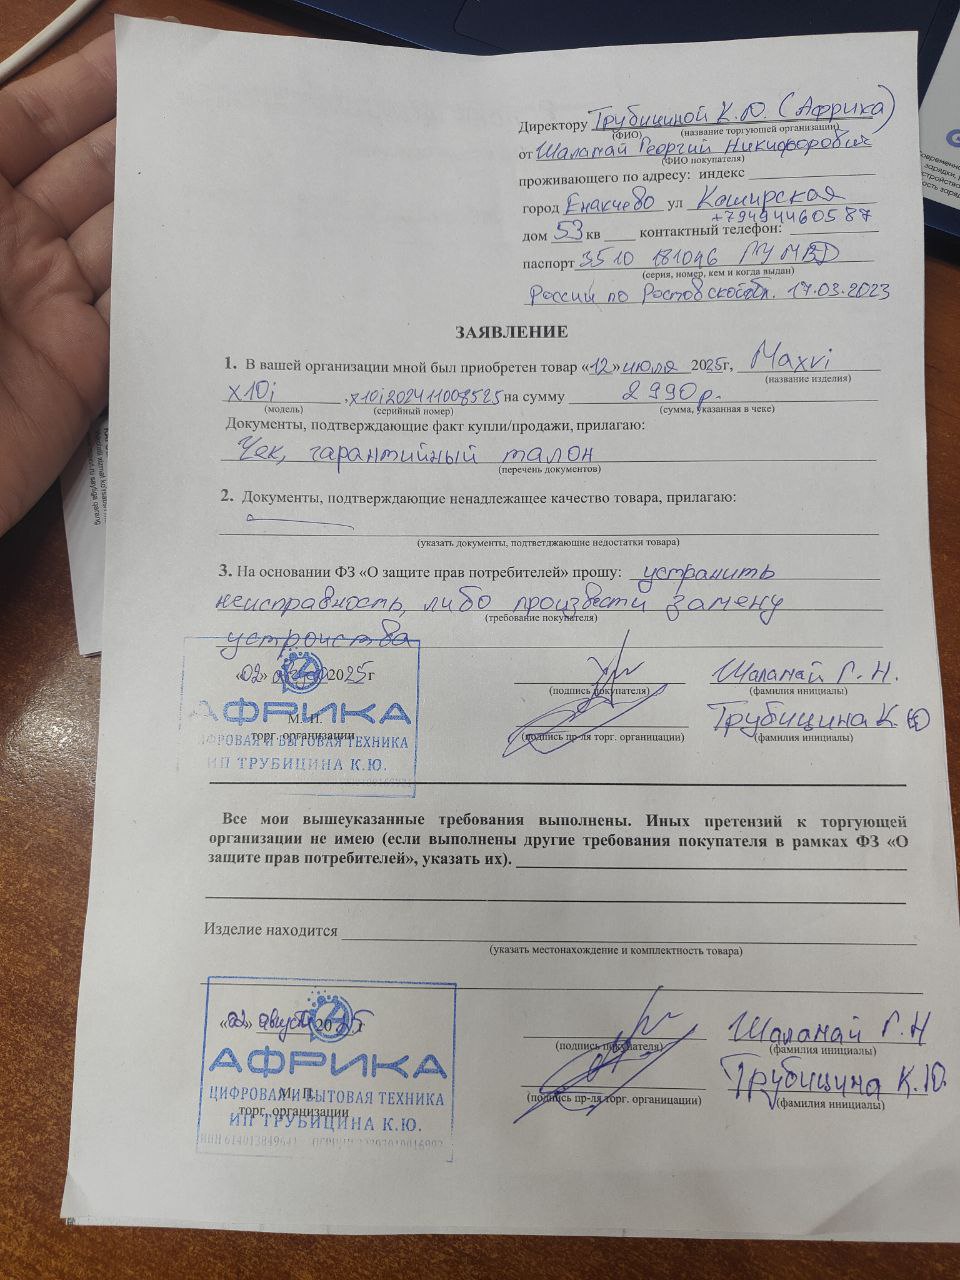 Директору Трубициной К.Ю. (Африка)
(ФИО) (название торгующей организации)
от Шаламай Георгий Никифорович
(ФИО покупателя)
проживающего по адресу: индекс
город Енакиево ул Каширская
+79494460587
дом 53 кв контактный телефон:
паспорт 3510 181046 ГУ МВД
(серия, номер, кем и когда выдан)
России по Ростовской обл. 17.03.2023
ЗАЯВЛЕНИЕ
1. В вашей организации мной был приобретен товар «12» июля 2025г, Maxvi
(название изделия)
x10i , x10i202411008525 на сумму 2 990 р.
(модель) (серийный номер) (сумма, указанная в чеке)
Документы, подтверждающие факт купли/продажи, прилагаю:
Чек, гарантийный талон
(перечень документов)
2. Документы, подтверждающие ненадлежащее качество товара, прилагаю:
(указать документы, подтветджающие недостатки товара)
3. На основании ФЗ «О защите прав потребителей» прошу: устранить
неисправность, либо произвести замену
(требование покупателя)
устроиства
«02» 2025г Шаламай Г.Н.
(подпись покупателя) (фамилия инициалы)
АФРИКА
М. П. Трубицина К.Ю
торг. организации (подпись пр-ля торг. органицации) (фамилия инициалы)
ЦИФРОВАЯ И БЫТОВАЯ ТЕХНИКА
ИП ТРУБИЦИНА К.Ю.
Все мои вышеуказанные требования выполнены. Иных претензий к торгующей
организации не имею (если выполнены другие требования покупателя в рамках ФЗ «О
защите прав потребителей», указать их).
Изделие находится
(указать местонахождение и комплектность товара)
«02» август 2025г Шаламай Г.Н
(подпись покупателя) (фамилия инициалы)
АФРИКА
Трубицина К.Ю.
ЦИФРОВАЯ И БЫТОВАЯ ТЕХНИКА
М. П. (подпись пр-ля торг. органицации) (фамилия инициалы)
торг. организации
ИП ТРУБИЦИНА К.Ю.